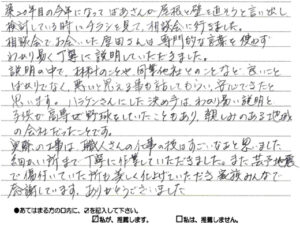 築20年目の今年になって ばあさんが屋根と壁を直そうと言い出し
検討している時にチラシを見て、相談会に行きました。
相談会でお会いした原田さんは専門的な言葉を使わず
わかり易く丁寧に説明していただきました。
説明の中で、材料のことや同業他社とのことなど 良いこと
ばかりでなく、悪いと思える事も話してもらい、安心できたと
思います。ハラケンさんにした決め手は、わかり易い説明と
子供が高専で野球をしていたこともあり、親しみのある地域
の会社だったことです。
実際の工事は職人さんの仕事の後はすごいなあと思いました
細かい所まで丁寧に作業していただきました。また若干地震
で傷付いていた所も美しく仕上げていただき 家族みんなで
感謝しています。ありがとうございました
●あてはまる方の□方に、☑を記入して下さい。
☑私が、推薦します。 □私は、推薦しません。